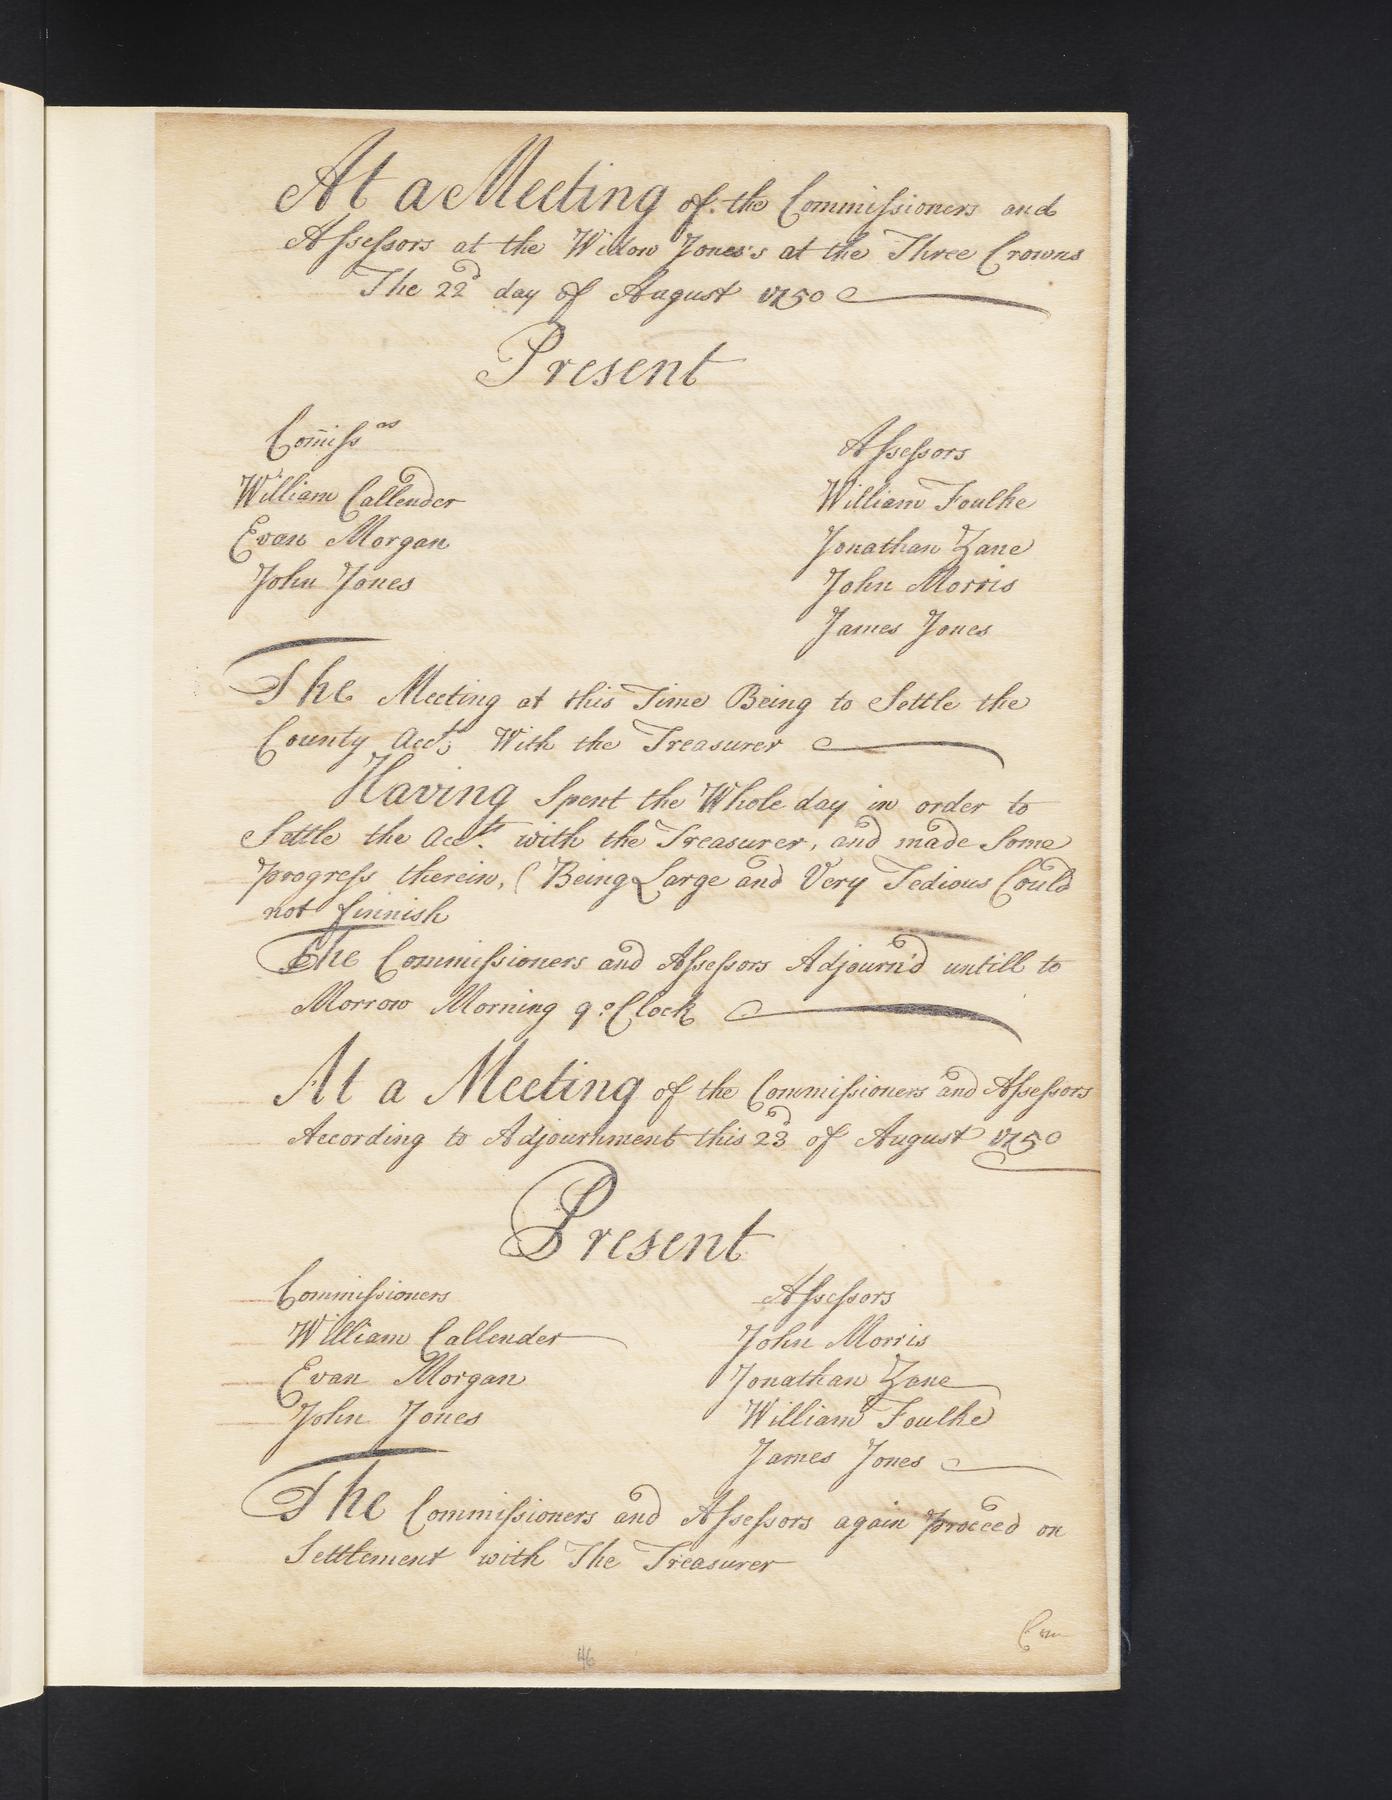 At a Meeting of the Commissioners and
Assessors at the Widow Jones's at the Three Crowns
The 22d day of August 1750
Present
Com̄issrs
Assessors
William Callender
William Foulke
Evan Morgan
Jonathan Zane
John Jones
John Morris
James Jones
The Meeting at this Time Being to Settle the
County Accts With the Treasurer
Having Spent the Whole day in order to
Settle the Accts. with the Treasurer, and made Some
progress therein, (Being Large and Very Tedious Could
not finnish
The Commissioners and Assessors Adjourn'd untill to
Morrow Morning 9 oClock
At a Meeting of the Commissioners and Assessors
According to Adjournment this 23d of August 1750
Present
Commissioners
Assessors
William Callender
John Morris
Evan Morgan
Jonathan Zane
John Jones
William Foulke
James Jones
The Commissioners and Assessors again proceed on
Settlement with The Treasurer
46